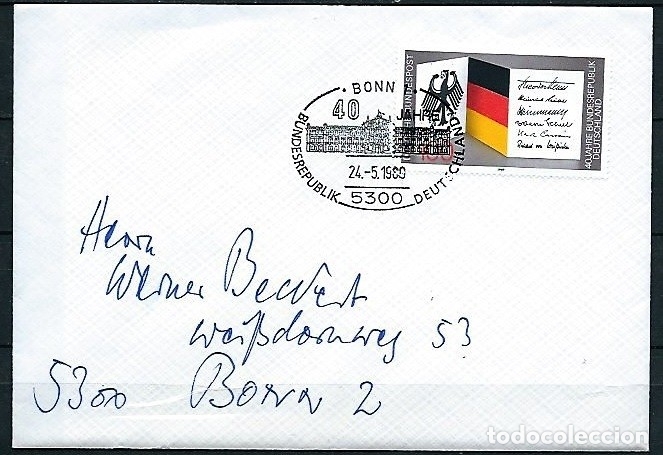 BONN
40 JAHRE
BUNDESREPUBLIK DEUTSCHLAND
24.-5.1989
5300
BUNDESPOST
100
40 JAHRE BUNDESREPUBLIK
DEUTSCHLAND
Herrn
Werner Beckert
Weißdornweg 53
5300 Bonn 2
todocoleccion